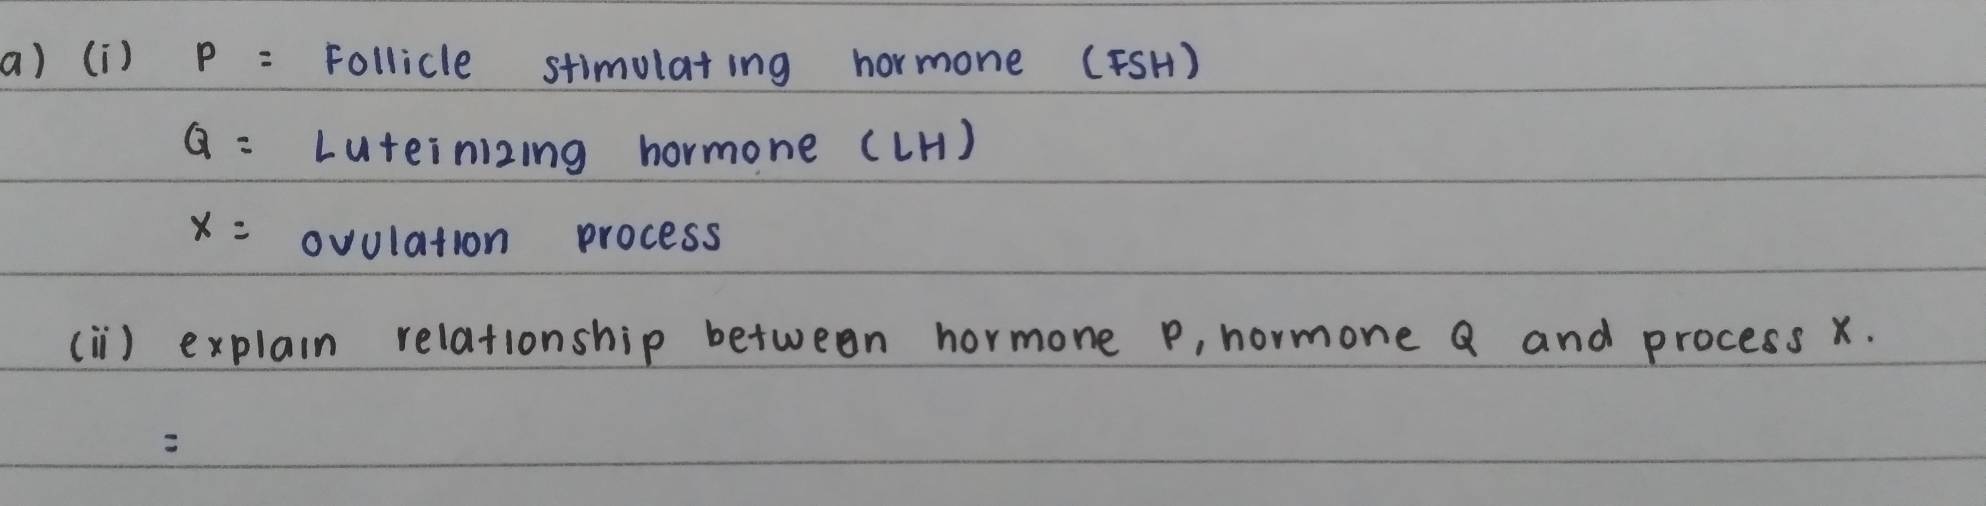 a) (i) P = Follicle stimulating hormone (FSH)
Q = Luteinizing hormone (LH)
X = ovulation process
(ii) explain relationship between hormone P, hormone Q and process X.
=